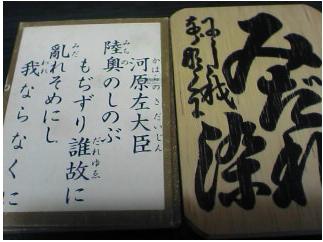 河原左大臣
陸奧のしのぶ
もぢずり誰故に
亂れそめにし
我ならなくに
みだれ
染